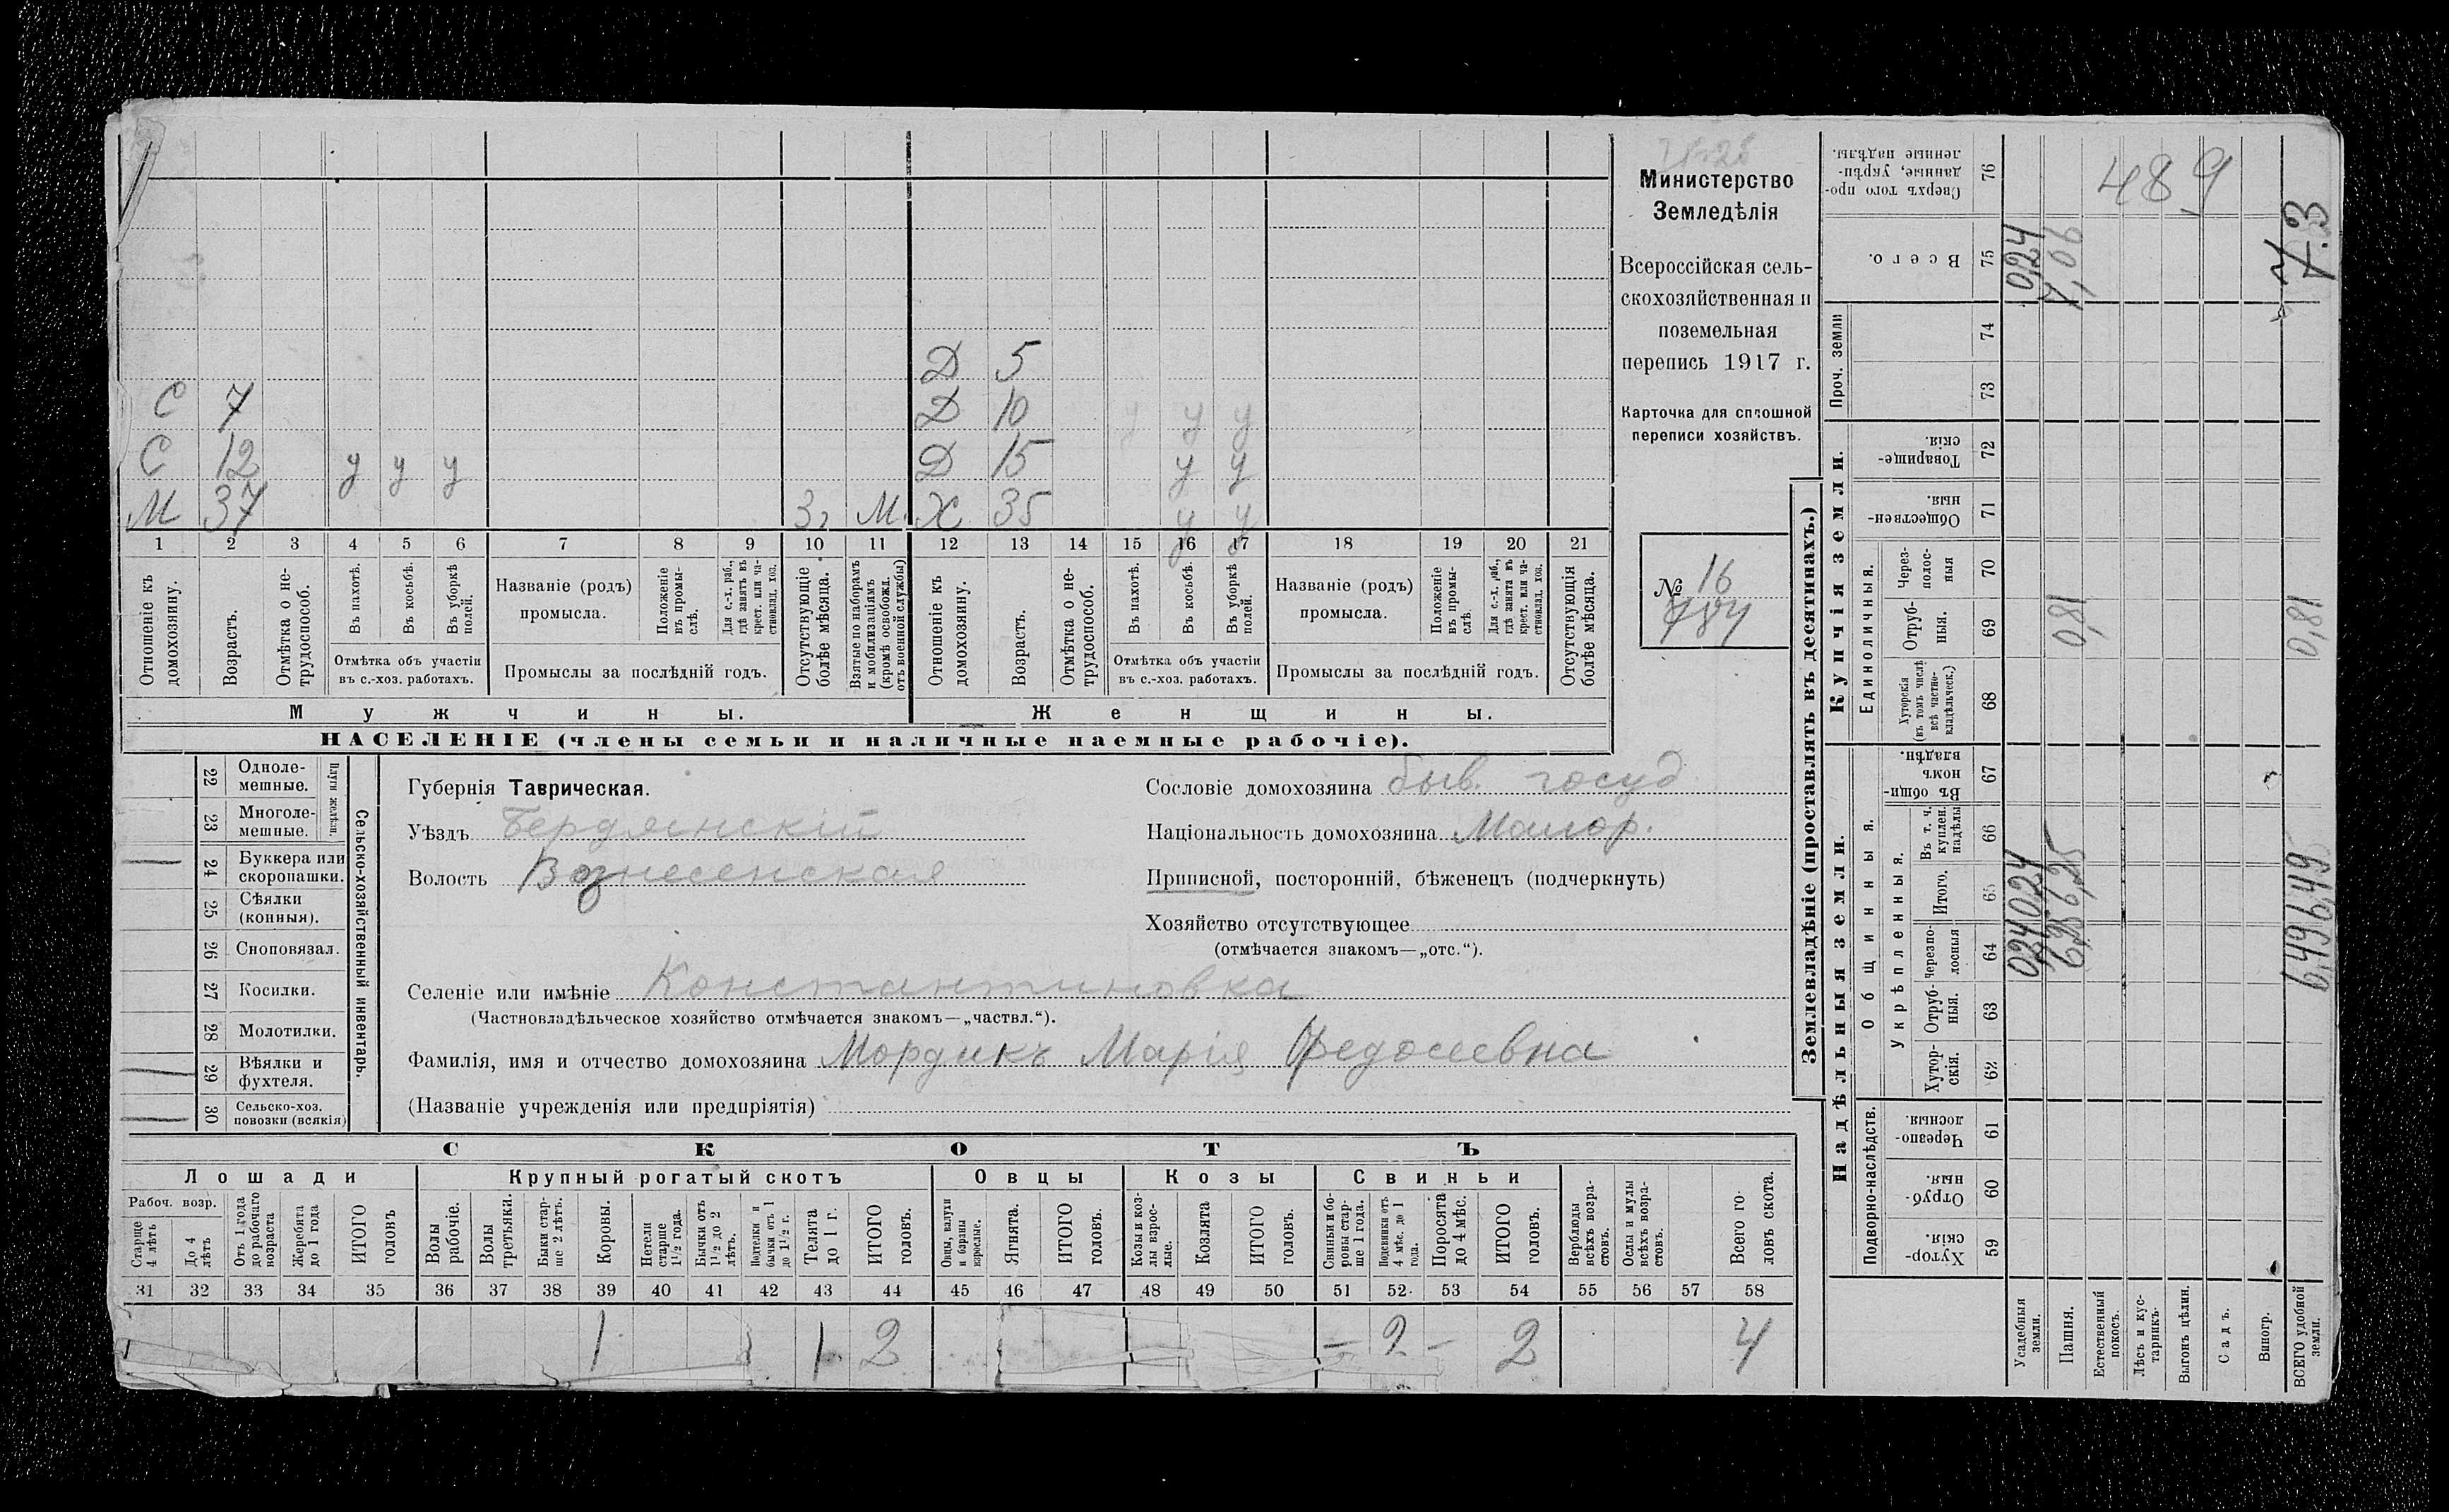 Министерство
Земледѣлія
Всероссійская сель-
скохозяйственная и
поземельная
перепись 1917 г.
Карточка для сплошной
переписи хозяйствъ.
№ 16
784
Д 5
С 7 Д 10 у у у
С 12 у у у Д 15 у у
М 37 3 М. Х 35 у у
1 2 3 4 5 6 7 8 9 10 11 12 13 14 15 16 17 18 19 20 21
Отношеніе къ домохозяину.
Возрастъ.
Отмѣтка о не-трудоспособ.
Въ пахотѣ.
Въ косьбѣ.
Въ уборкѣ полей.
Отмѣтка объ участіи
въ с.-хоз. работахъ.
Названіе (родъ)
промысла.
Положеніе въ промы-слѣ.
Для с.-х. раб., гдѣ занятъ въ крест. или ча-стновлад. хоз.
Промыслы за послѣдній годъ.
Отсутствующіе болѣе мѣсяца.
Взятые по наборамъ и мобилизаціямъ (кромѣ освобожд. отъ военной службы)
Отношеніе къ домохозяину.
Возрастъ.
Отмѣтка о не-трудоспособ.
Въ пахотѣ.
Въ косьбѣ.
Въ уборкѣ полей.
Отмѣтка объ участіи
въ с.-хоз. работахъ.
Названіе (родъ)
промысла.
Положеніе въ промы-слѣ
Для с.-х. раб., гдѣ занята въ крест. или ча-стновлад. хоз.
Промыслы за послѣдній годъ.
Отсутствующія болѣе мѣсяца.
Мужчины.
Женщины.
НАСЕЛЕНІЕ (члены семьи и наличные наемные рабочіе).
Сельско-хозяйственный инвентарь.
Плуги желѣзн.
22 Одноле-мешные.
23 Многоле-мешные.
24 Буккера или скоропашки.
25 Сѣялки (конныя).
26 Сноповязал.
27 Косилки.
28 Молотилки.
29 Вѣялки и фухтеля.
30 Сельско-хоз. повозки (всякія)
Губернія Таврическая.
Уѣздъ Бердянскій
Волость Вознесенская
Сословіе домохозяина быв. госуд
Національность домохозяина Малор.
Приписной, посторонній, бѣженецъ (подчеркнуть)
Хозяйство отсутствующее
(отмѣчается знакомъ—„отс.“).
Селеніе или имѣніе Константиновка
(Частновладѣльческое хозяйство отмѣчается знакомъ—„частвл.“).
Фамилія, имя и отчество домохозяина Мордикъ Марія Федосеевна
(Названіе учрежденія или предпріятія)
СКОТЪ
Лошади Крупный рогатый скотъ Овцы Козы Свиньи
Рабоч. возр.
Старше 4 лѣтъ
До 4 лѣтъ
Отъ 1 года до рабочаго возраста
Жеребята до 1 года
ИТОГО головъ
Волы рабочіе.
Волы третьяки.
Быки стар-ше 2 лѣтъ.
Коровы.
Нетели старше 1½ года.
Бычки отъ 1½ до 2 лѣтъ.
Подтелки и бычки отъ 1 до 1½ г.
Телята до 1 г.
ИТОГО головъ.
Овцы, валухи и бараны взрослые.
Ягнята.
ИТОГО головъ.
Козы и коз-лы взрос-лые.
Козлята
ИТОГО головъ.
Свиньи и бо-ровы стар-ше 1 года.
Подсвинки отъ 4 мѣс. до 1 года.
Поросята до 4 мѣс.
ИТОГО головъ.
Верблюды всѣхъ возра-стовъ.
Ослы и мулы всѣхъ возра-стовъ.
Всего го-ловъ скота.
31 32 33 34 35 36 37 38 39 40 41 42 43 44 45 46 47 48 49 50 51 52 53 54 55 56 57 58
1 1 2 – 2 – 2 4
Землевладѣніе (проставлять въ десятинахъ.)
Надѣльныя земли.
Купчія земли.
Проч. земли
Подворно-наслѣдств.
Общинныя.
Укрѣпленныя.
Единоличныя.
Хутор-скія. 59
Отруб-ныя. 60
Черезпо-лосныя 61
Хутор-скія. 62
Отруб-ныя. 63
Черезпо-лосныя 64
Итого. 65
Въ т. ч. куплен. надѣлы 66
Въ общи-номъ владѣн. 67
Хуторскія (въ томъ числѣ всѣ частно-владѣльческ.) 68
Отруб-ныя. 69
Через-полос-ныя 70
Обществен-ныя. 71
Товарище-скія. 72
73
74
Всего. 75
Сверхъ того про-данные, укрѣп-ленные надѣлы. 76
Усадебныя земли. 0,24 0,24 0,24
Пашня. 6,25 6,25 0,81 7,06
Естественный покосъ.
Лѣсъ и кус-тарникъ.
Выгонъ цѣлин.
Садъ.
Виногр.
ВСЕГО удобной земли. 6,49 6,49 0,81 7.3
489